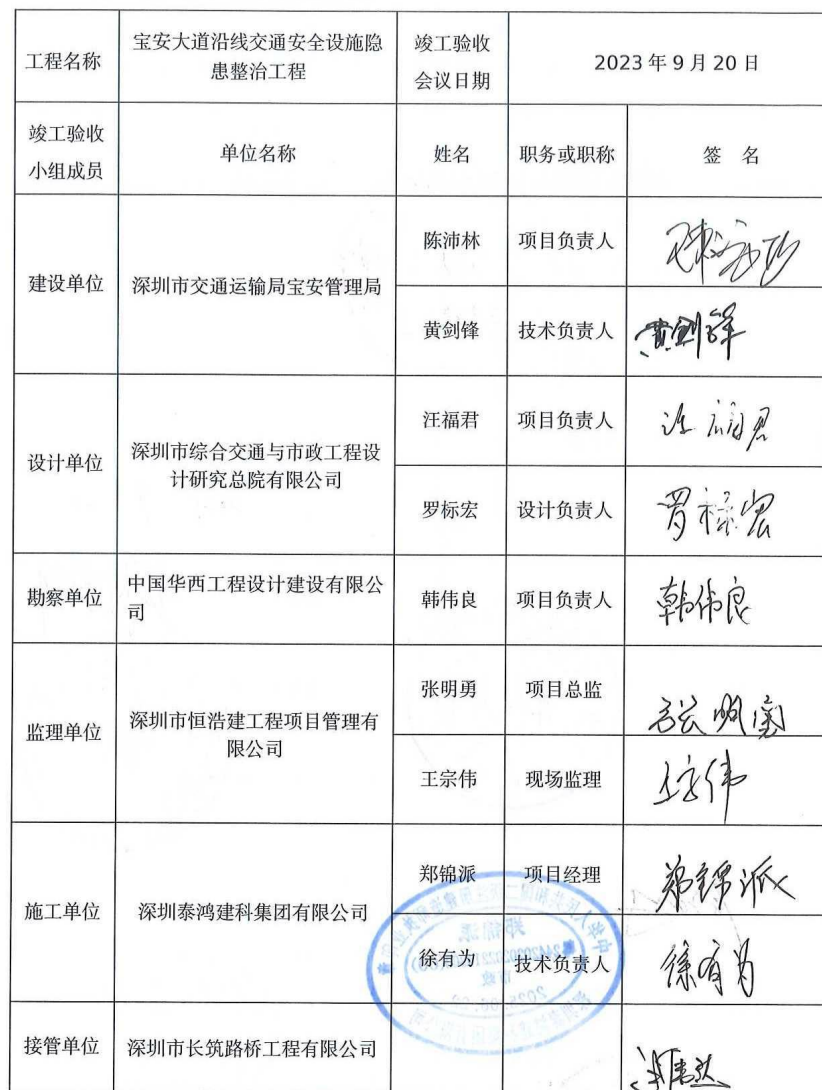 工程名称
宝安大道沿线交通安全设施隐
患整治工程
竣工验收
会议日期
2023 年 9 月 20 日
竣工验收
小组成员
单位名称
姓名
职务或职称
签 名
建设单位
深圳市交通运输局宝安管理局
陈沛林
项目负责人
黄剑锋
技术负责人
黄剑锋
设计单位
深圳市综合交通与市政工程设
计研究总院有限公司
汪福君
项目负责人
汪福君
罗标宏
设计负责人
罗标宏
勘察单位
中国华西工程设计建设有限公
司
韩伟良
项目负责人
韩伟良
监理单位
深圳市恒浩建工程项目管理有
限公司
张明勇
项目总监
张明勇
王宗伟
现场监理
王宗伟
施工单位
深圳泰鸿建科集团有限公司
郑锦派
项目经理
郑锦派
徐有为
技术负责人
徐有为
接管单位
深圳市长筑路桥工程有限公司